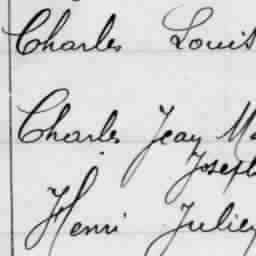 Charles Louis
Charles Jean Ma
Joseph
Henri Julien